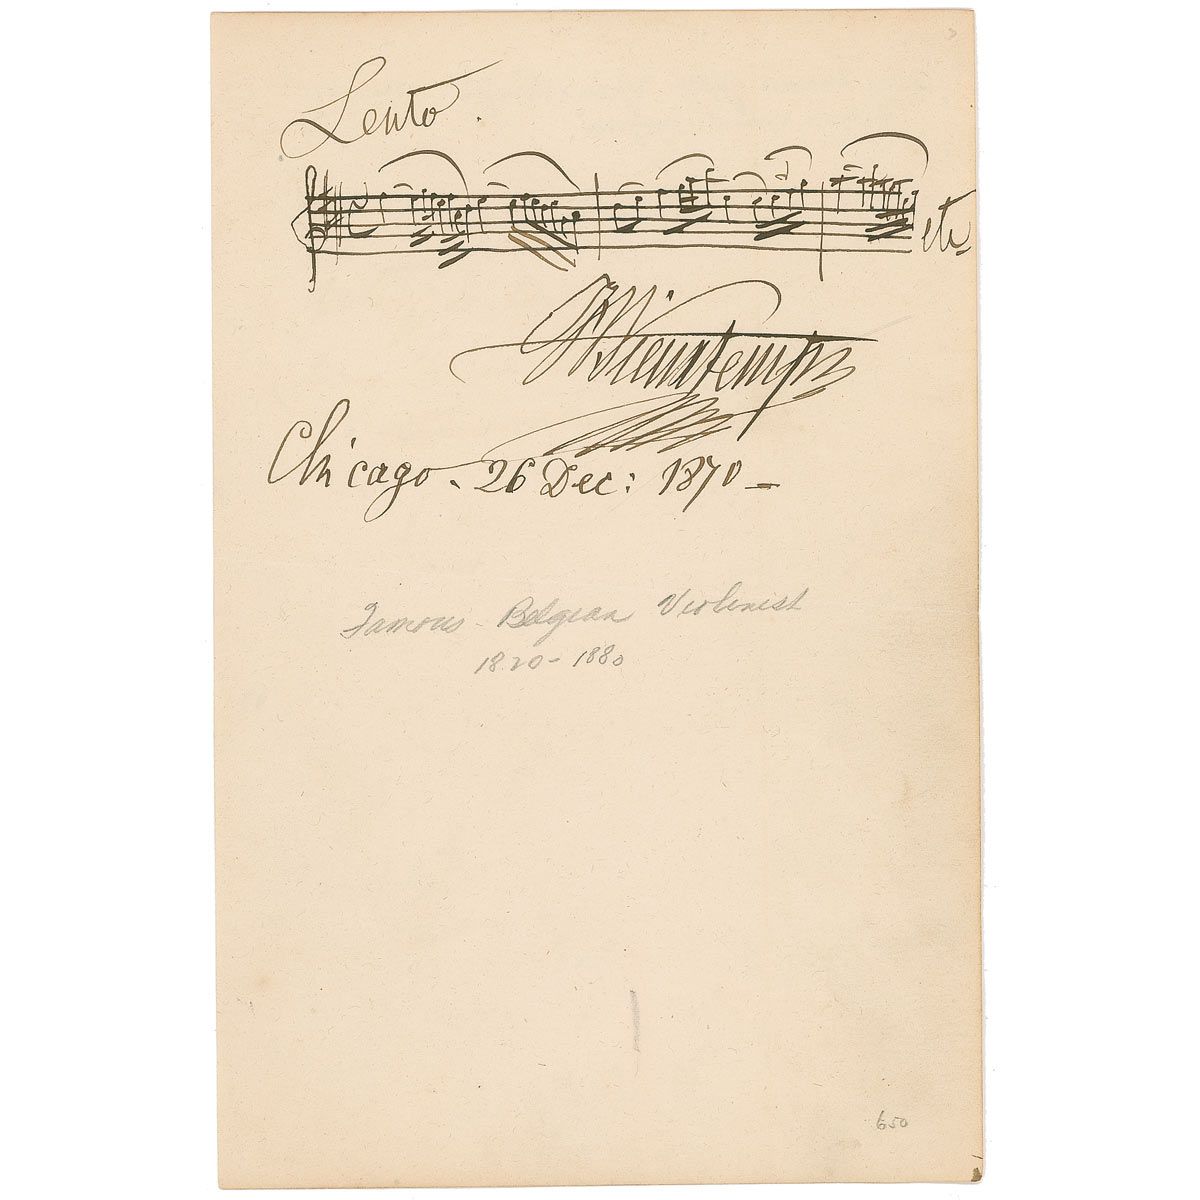 Lento.
etc
H Vieuxtemps
Chicago. 26 Dec: 1870_
Famous - Belgian Violinist
1820-1880
650